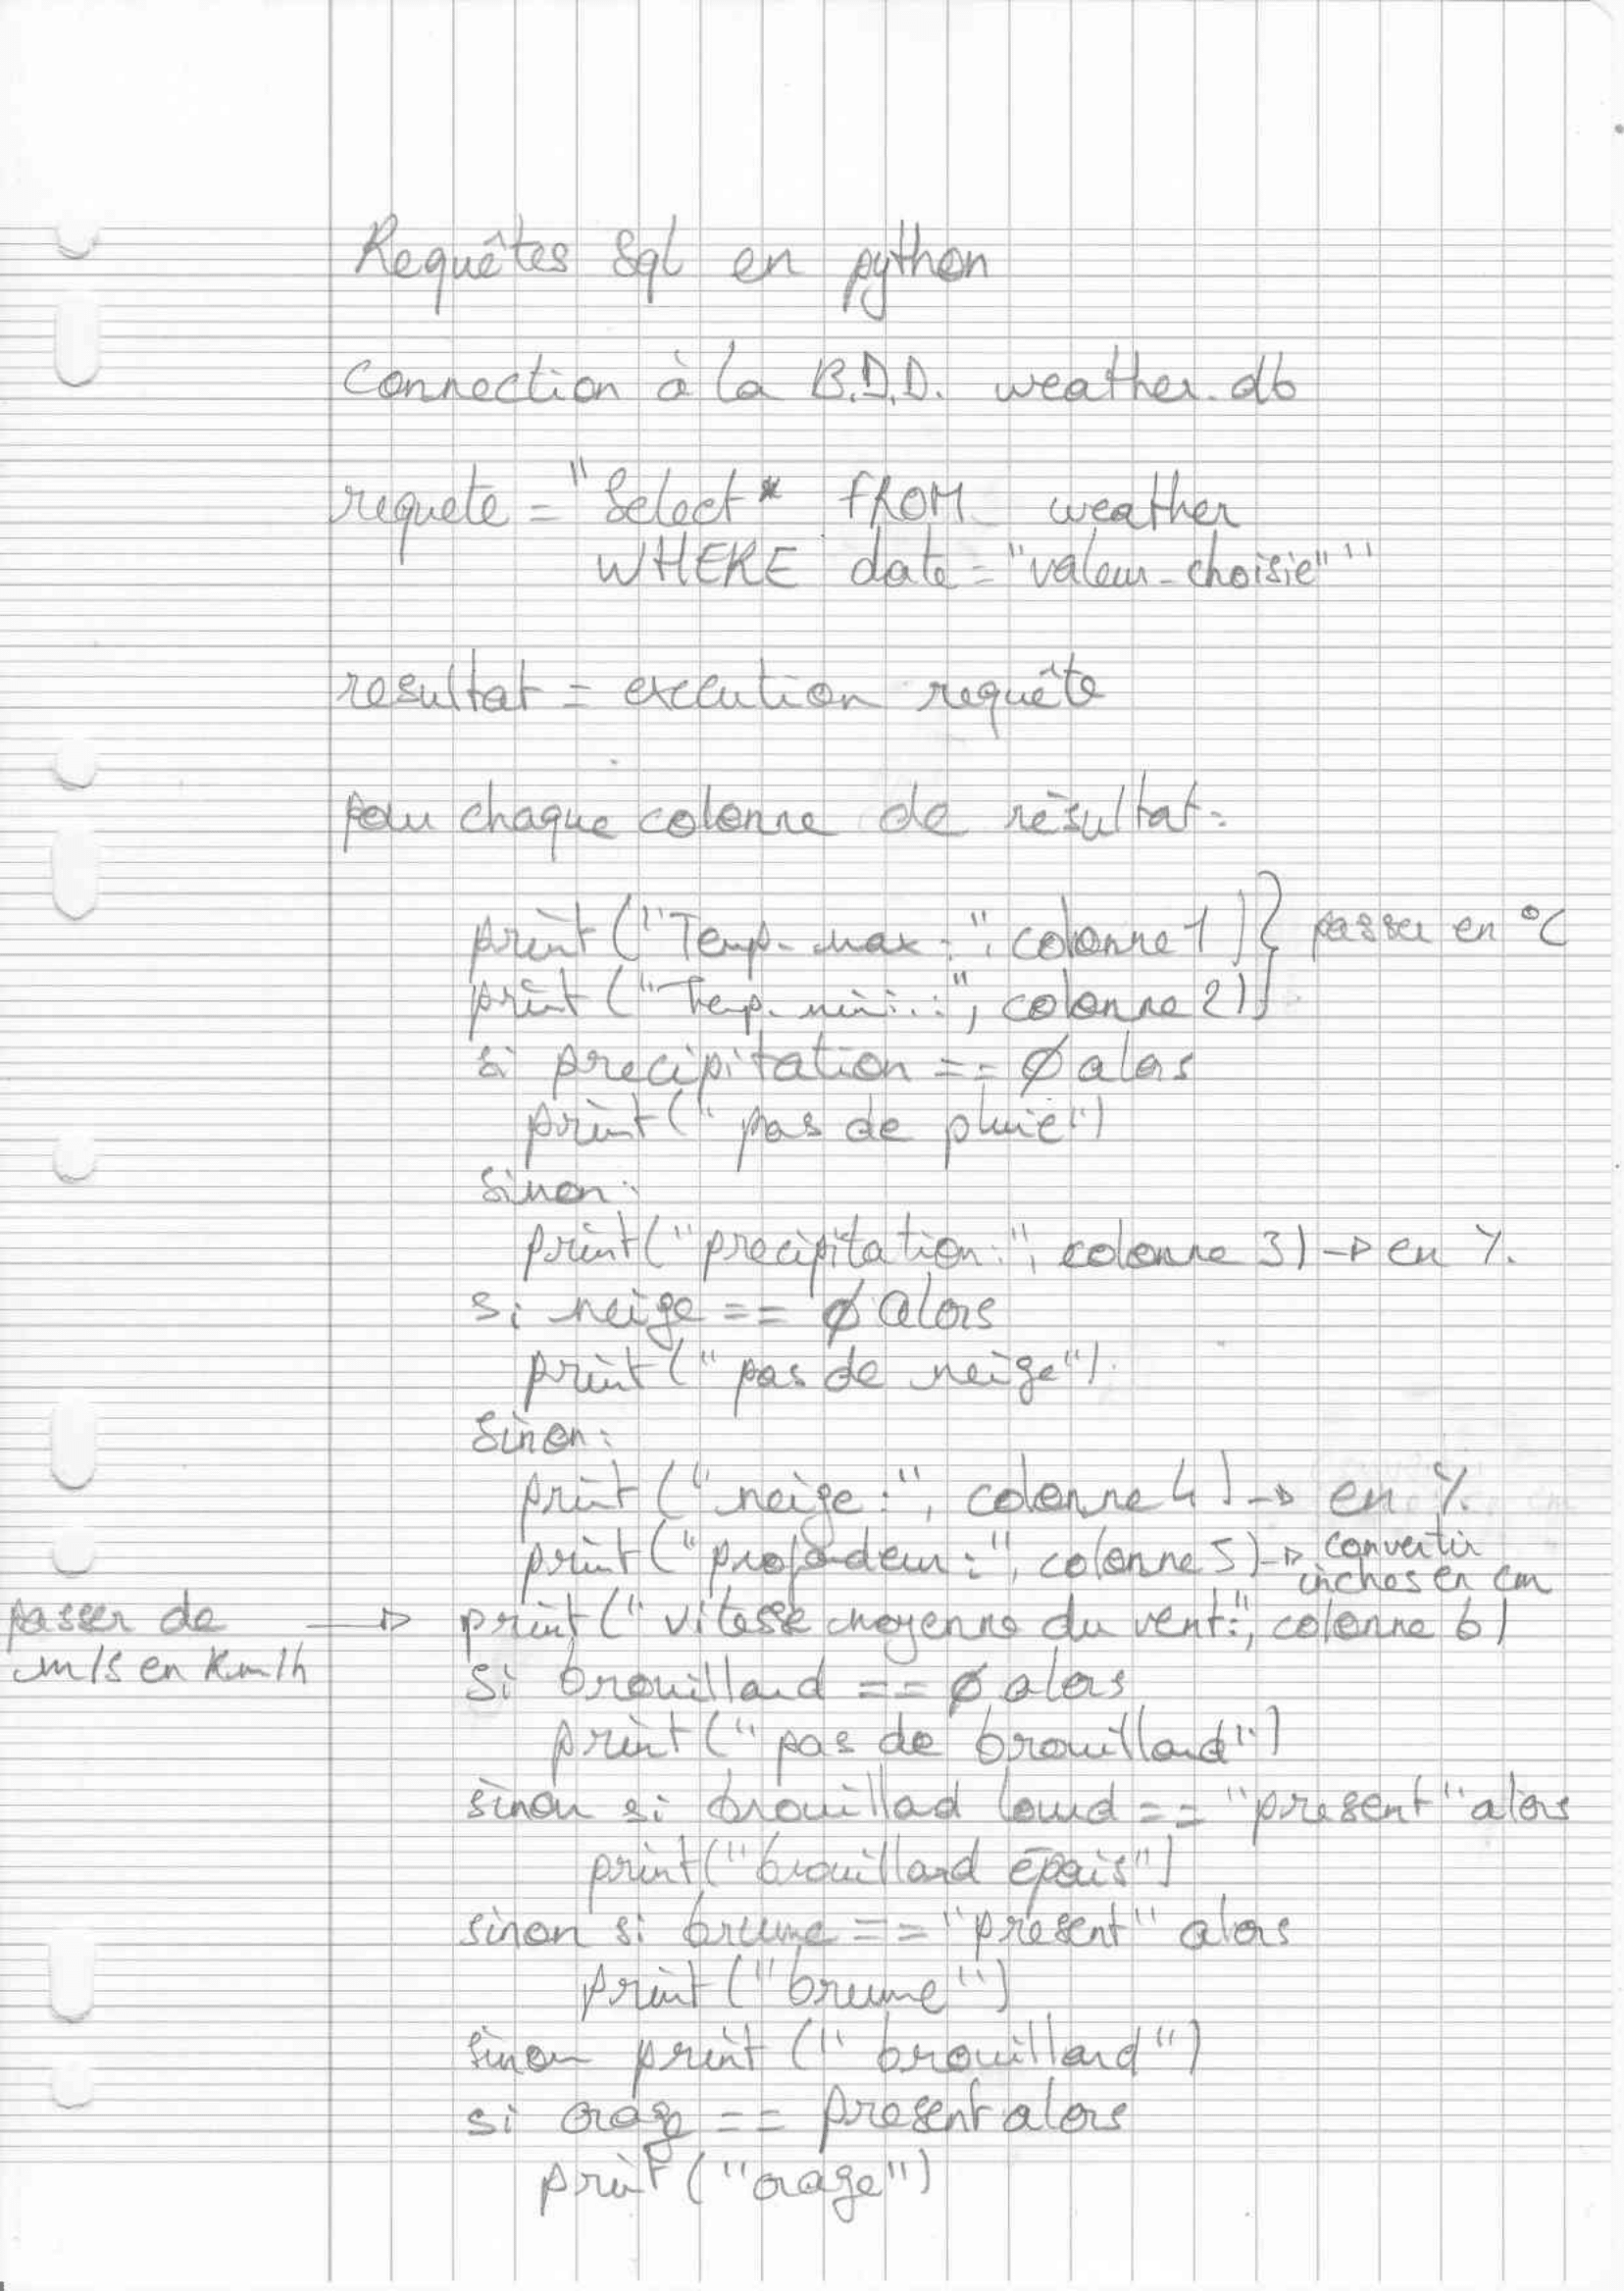 Requêtes Sql en python
Connection à la B.D.D. weather.db
requete = "Select * FROM weather
WHERE date = "valeur-choisie""
resultat = execution requête
pour chaque colonne de résultat:
print("Temp. max:", colonne 1) } passer en °C
print("Temp. mini:", colonne 2)
si precipitation == Ø alors
print("pas de pluie")
sinon:
print("precipitation:", colonne 3) -> en %
si neige == Ø alors
print("pas de neige")
Sinon:
print("neige:", colonne 4) -> en %
print("profondeur:", colonne 5) -> convertir
inches en cm
passer de -> print("vitesse moyenne du vent:", colonne 6)
m/s en Km/h
Si brouillard == Ø alors
print("pas de brouillard")
sinon si brouillad lourd == "present" alors
print("brouillard épais")
sinon si brume == "present" alors
print("brume")
sinon print("brouillard")
si orage == present alors
print("orage")